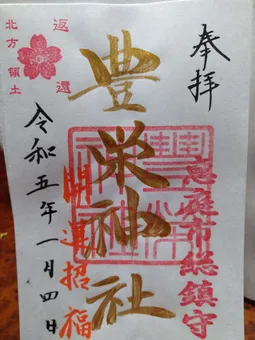 奉拝
恵庭市総鎮守
豊栄神社
開運招福
返還
北方領土
令和五年一月四日